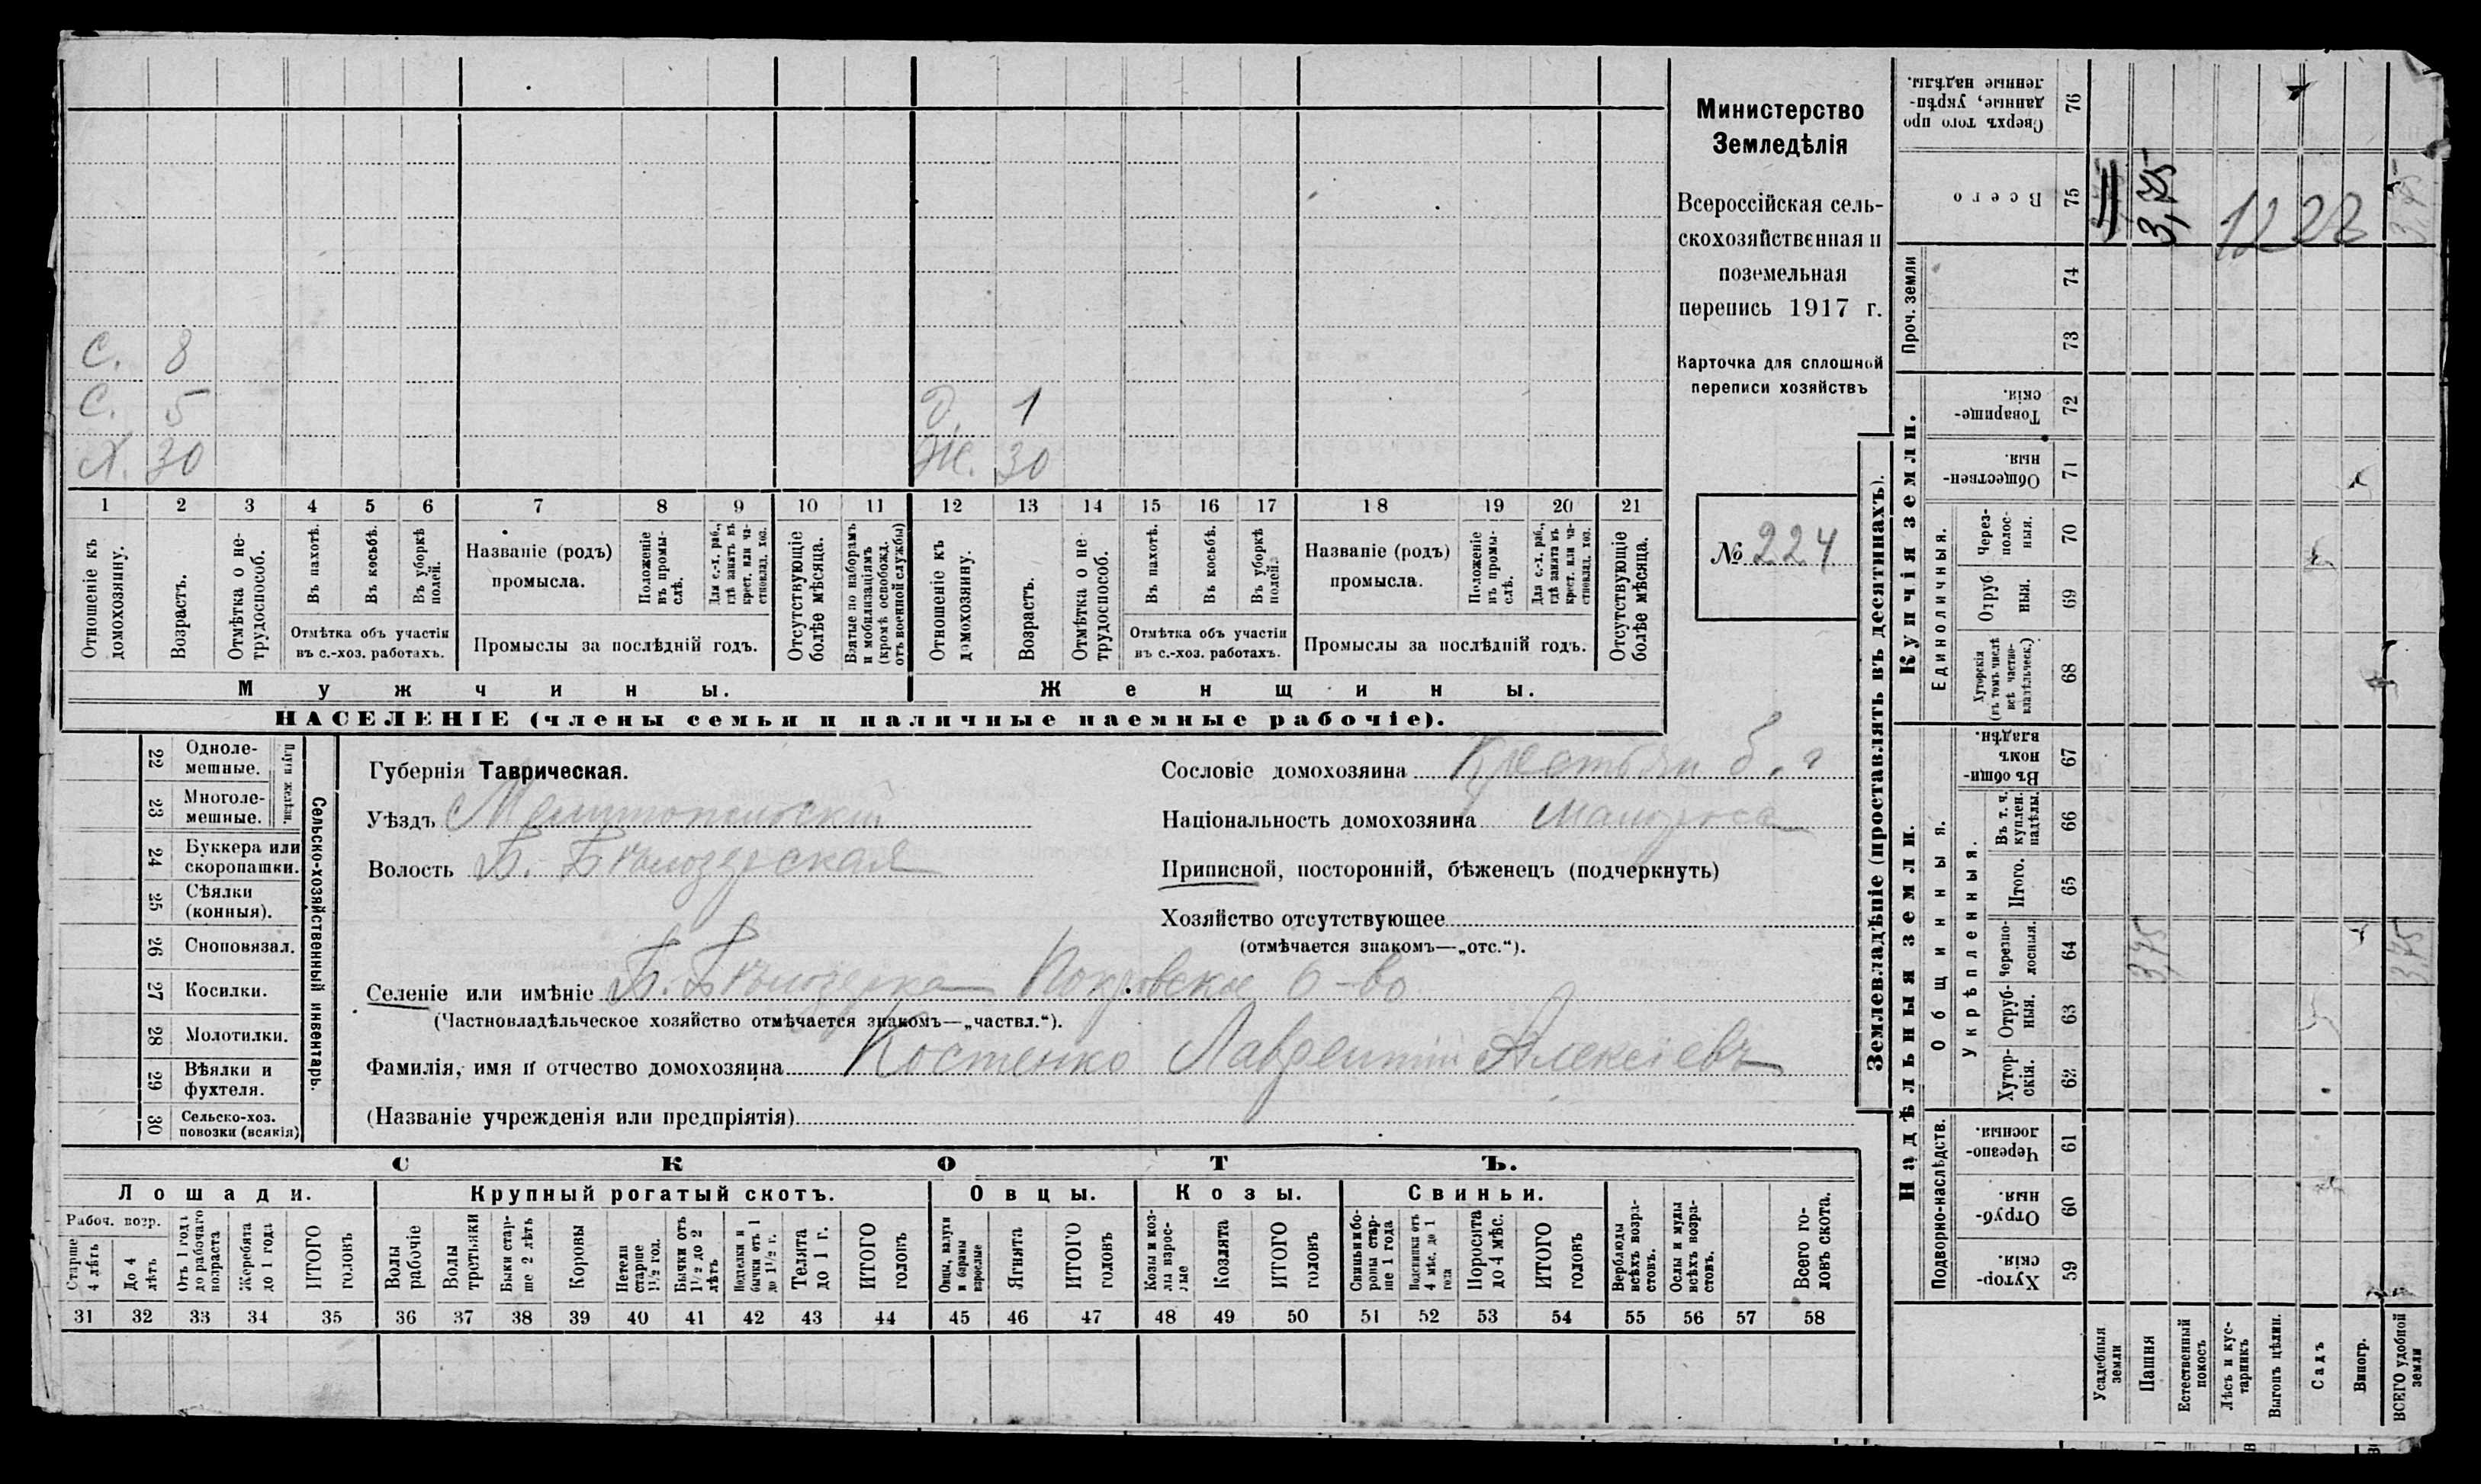 С. 8
С. 5
Д. 1
Х. 30
Ж. 30
1 2 3 4 5 6 7 8 9 10 11 12 13 14 15 16 17 18 19 20 21
Отношеніе къ домохозяину.
Возрастъ.
Отмѣтка о не-трудоспособ.
Въ пахотѣ.
Въ косьбѣ.
Въ уборкѣ полей.
Отмѣтка объ участіи
въ с.-хоз. работахъ.
Названіе (родъ)
промысла.
Положеніе въ промы-слѣ.
Для с.-х. раб., гдѣ занятъ въ крест. или ча-стновлад. хоз.
Промыслы за послѣдній годъ.
Отсутствующіе болѣе мѣсяца.
Взятые по наборамъ и мобилизаціямъ (кромѣ освобожд. отъ военной службы)
Отношеніе къ домохозяину.
Возрастъ.
Отмѣтка о не-трудоспособ.
Въ пахотѣ.
Въ косьбѣ.
Въ уборкѣ полей.
Отмѣтка объ участіи
въ с.-хоз. работахъ.
Названіе (родъ)
промысла.
Положеніе въ промы-слѣ.
Для с.-х. раб., гдѣ занята въ крест. или ча-стновлад. хоз.
Промыслы за послѣдній годъ.
Отсутствующіе болѣе мѣсяца.
Мужчины.
Женщины.
НАСЕЛЕНІЕ (члены семьи и наличные наемные рабочіе).
Министерство
Земледѣлія
Всероссійская сель-
скохозяйственная и
поземельная
перепись 1917 г.
Карточка для сплошной
переписи хозяйствъ
№ 224
Сельско-хозяйственный инвентарь.
Плуги желѣзн.
22 Одноле-мешные.
23 Многоле-мешные.
24 Буккера или скоропашки.
25 Сѣялки (конныя).
26 Сноповязал.
27 Косилки.
28 Молотилки.
29 Вѣялки и фухтеля.
30 Сельско-хоз. повозки (всякія)
Губернія Таврическая.
Уѣздъ Мелитопольскій
Волость Б. Бѣлозерская
Сословіе домохозяина Крестьян
Національность домохозяина малоросс
Приписной, посторонній, бѣженецъ (подчеркнуть)
Хозяйство отсутствующее
(отмѣчается знакомъ—„отс.“).
Селеніе или имѣніе Б. Бѣлозерка Покровское о-во
(Частновладѣльческое хозяйство отмѣчается знакомъ—„частвл.“).
Фамилія, имя и отчество домохозяина Костенко Лаврентій Алексѣевъ
(Названіе учрежденія или предпріятія)
СКОТЪ.
Лошади.
Крупный рогатый скотъ.
Овцы.
Козы.
Свиньи.
Рабоч. возр.
Старше 4 лѣтъ
До 4 лѣтъ
Отъ 1 года до рабочаго возраста
Жеребята до 1 года
ИТОГО головъ
Волы рабочіе
Волы третьяки
Быки стар-ше 2 лѣтъ
Коровы
Нетели старше 1½ год.
Бычки отъ 1½ до 2 лѣтъ
Подтелки и бычки отъ 1 до 1½ г.
Телята до 1 г.
ИТОГО головъ
Овцы, валухи и бараны взрослые
Ягнята
ИТОГО головъ
Козы и коз-лы взрос-лые
Козлята
ИТОГО головъ
Свиньи и бо-ровы стар-ше 1 года
Подсвинки отъ 4 мѣс. до 1 года
Поросята до 4 мѣс.
ИТОГО головъ
Верблюды всѣхъ возра-стовъ.
Ослы и мулы всѣхъ возра-стовъ.
Всего го-ловъ скота.
31 32 33 34 35 36 37 38 39 40 41 42 43 44 45 46 47 48 49 50 51 52 53 54 55 56 57 58
Землевладѣніе (проставлять въ десятинахъ).
Сверхъ того про-данные, укрѣп-ленные надѣлы. 76
Всего 75
3,75
1228
3,75
Проч. земли
74
73
Купчія земли.
Товарище-скія. 72
Обществен-ныя. 71
Единоличныя.
Через-полос-ныя. 70
Отруб-ныя. 69
Хуторскія (въ томъ числѣ всѣ частно-владѣльческ.) 68
Надѣльныя земли.
Общинныя.
Въ общин-номъ владѣн. 67
Укрѣпленныя.
Въ т. ч. куплен. надѣлы. 66
Итого. 65
Черезпо-лосныя. 64
3,75
3,75
Отруб-ныя. 63
Хутор-скія. 62
Подворно-наслѣдств.
Черезпо-лосныя. 61
Отруб-ныя. 60
Хутор-скія. 59
Усадебныя земли
Пашня
Естественный покосъ
Лѣсъ и кус-тарникъ
Выгонъ цѣлин.
Садъ
Виногр.
ВСЕГО удобной земли